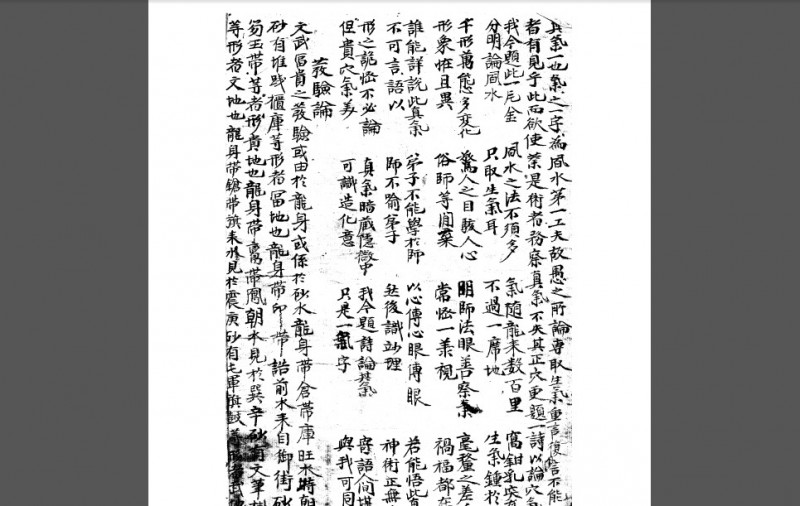 真氣一也氣之一字為風水第一工夫故愚之所論專取生氣重言復言不能
者有見乎此而欲使業是術者務察真氣不失其正穴更題一詩以論穴氣
我今題此一尺金 風水之法不須多 氣隨龍來數百里 窩鉗乳突
分明論風水 只取生氣耳 不過一席地 生氣鍾於
千形萬態多變化 驚人之目駭人心 明師法眼善察氣 毫釐之差
形象恠且異 俗師等閒棄 常恠一視 禍福都在
誰能詳說此真氣 弟子不能學於師 以心傳心眼傳眼 若能悟
不可言語以 師不喻弟子 然後識妙理 神術正無
形之詭恠不必論 真氣暗蔵隱微中 我今題詩論其氣 寄語人間堪
但貴穴氣美 可識造化意 只是一氣字 與我可同
發驗論
文武冨貴之發驗或由於龍身或係於砂水龍身帶倉帶庫旺水特朝
砂有堆錢櫃庫等形者冨地也龍身帶印帶誥前水來自御街砂
笏玉帶等者形貴地也龍身帶鸞帶鳳朝水見於巽辛砂有文筆
等形者文地也龍身帶鎗帶旗來水見於震庚砂有屯軍旗鼓